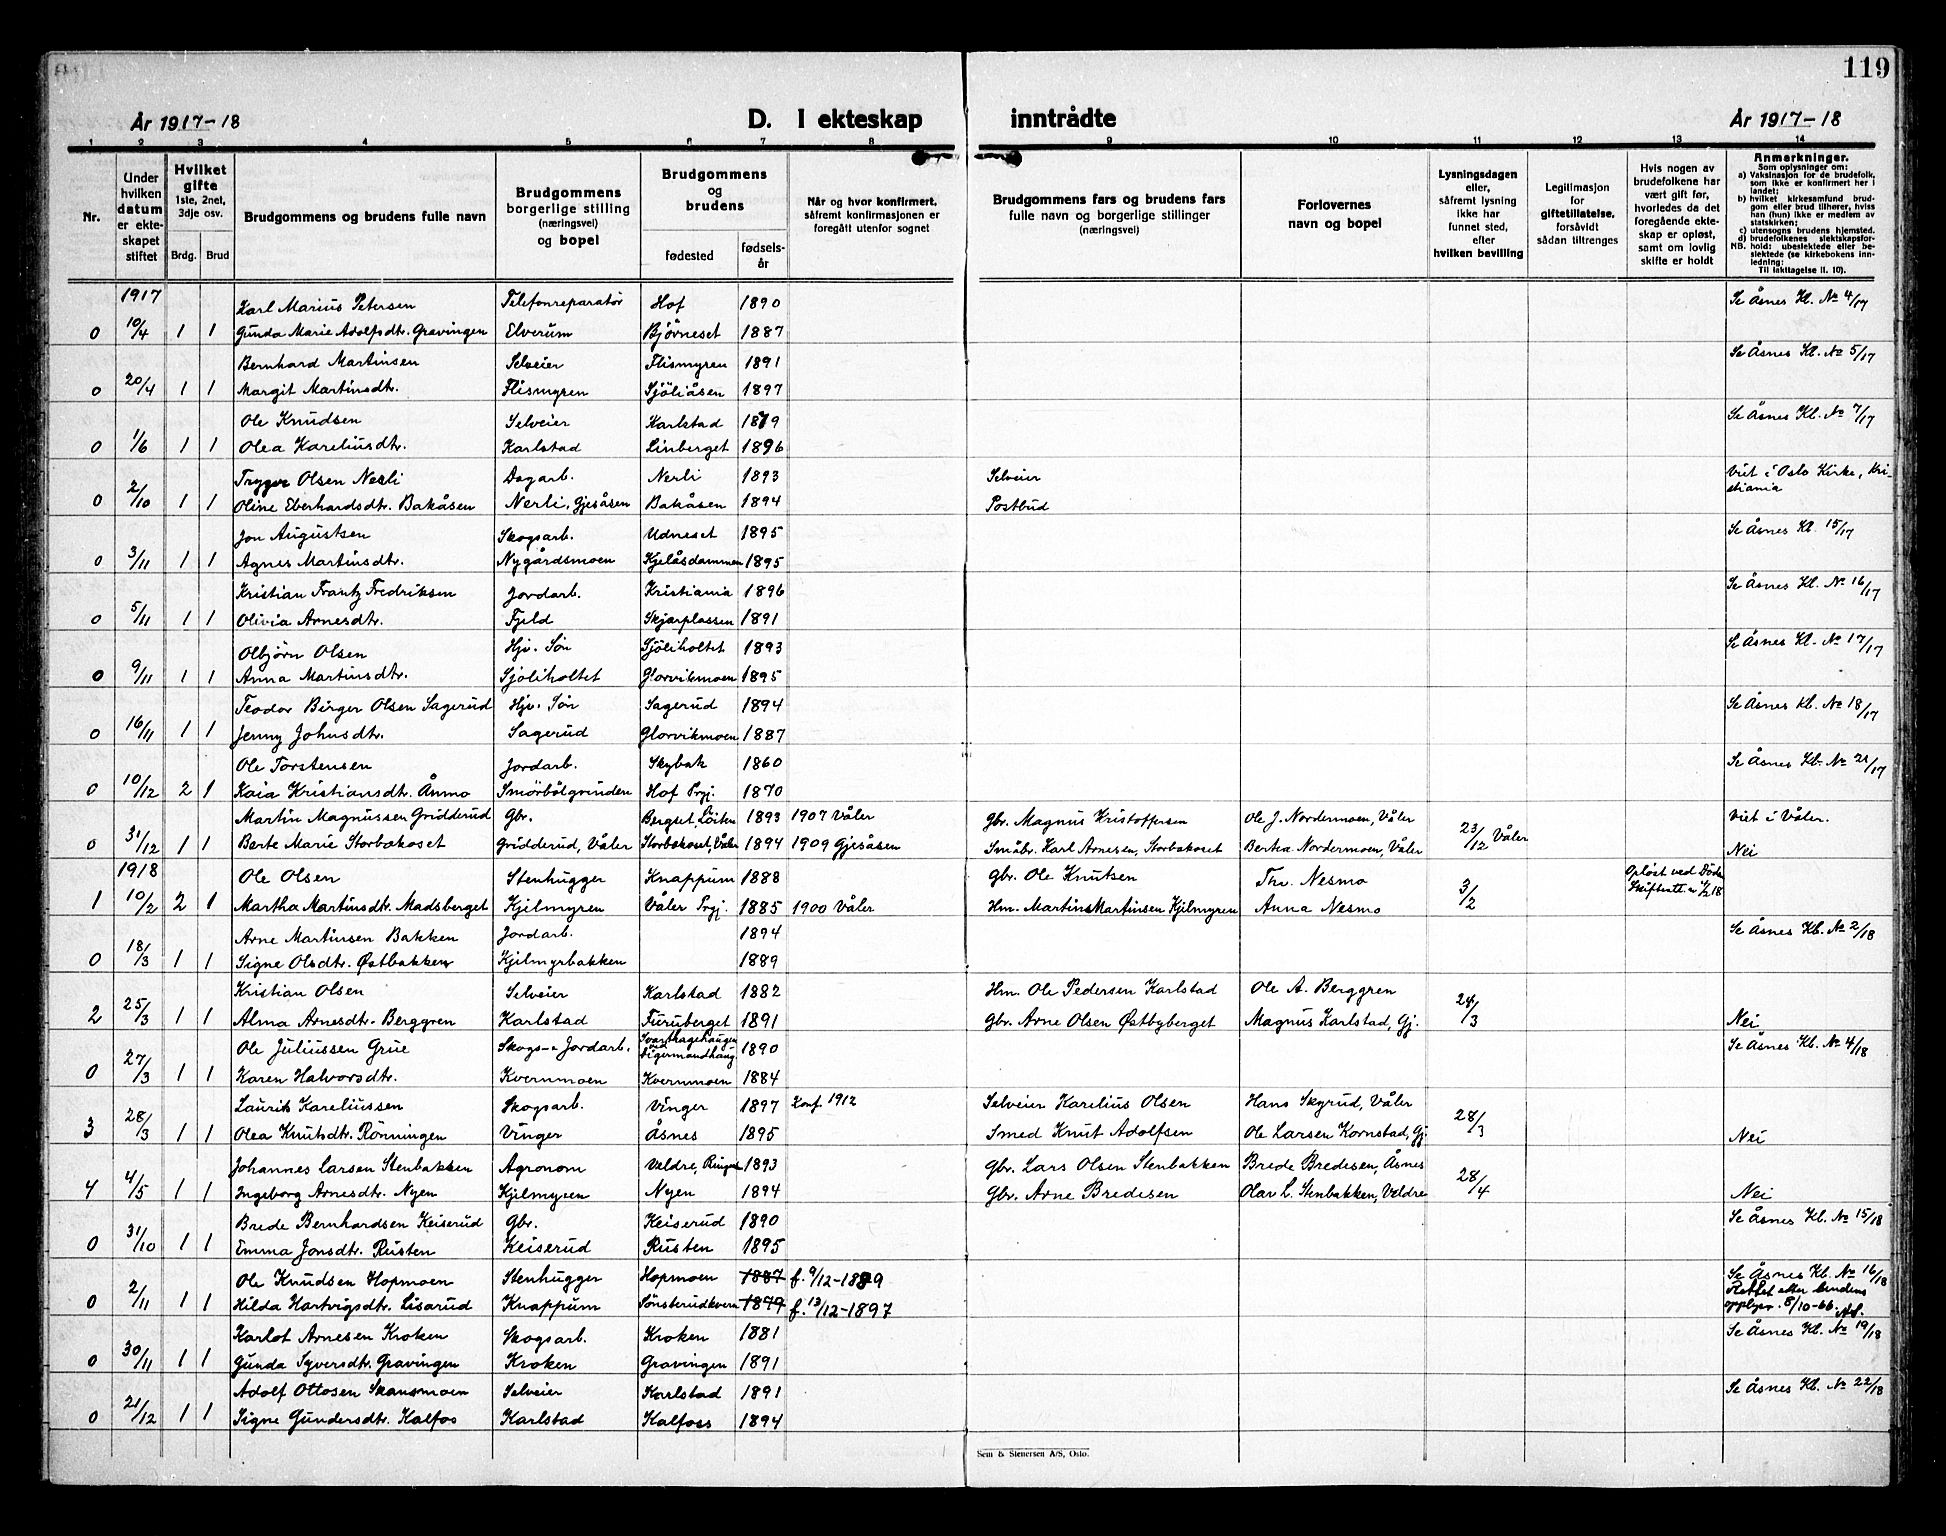 119
År 1917-18 D. I ekteskap inntrådte År 1917-18
1 2 3 4 5 6 7 8 9 10 11 12 13 14
Nr.
Under hvilken datum er ekteskapet stiftet
Hvilket gifte 1ste, 2net, 3dje osv.
Brdg. Brud
Brudgommens og brudens fulle navn
Brudgommens borgerlige stilling (næringsvei) og bopel
Brudgommens og brudens
fødested fødselsår
Når og hvor konfirmert, såfremt konfirmasjonen er foregått utenfor sognet
Brudgommens fars og brudens fars fulle navn og borgerlige stillinger (næringsvei)
Forlovernes navn og bopel
Lysningsdagen eller, såfremt lysning ikke har funnet sted, efter hvilken bevilling
Legitimasjon for giftetillatelse, forsåvidt sådan tiltrenges
Hvis nogen av brudefolkene har vært gift før, hvorledes da det foregående ekteskap er opløst, samt om lovlig skifte er holdt
Anmerkninger.
Som oplysninger om:
a) Vaksinasjon for de brudefolk, som ikke er konfirmert her i landet;
b) hvilket kirkesamfund brudgom eller brud tilhører, hvis han (hun) ikke er medlem av statskirken;
c) utensogns brudens hjemsted.
d) brudefolkenes slektskapsforhold: ubeslektede eller beslektede (se kirkebokens innledning:
NB.
Til iakttagelse II. 10).
1917 Karl Marius Petersen Telefonreparatör Hof 1890 Se Åsnes Kl. No 4/17
0 10/4 1 1 Gunda Marie Adolfsdtr. Gravingen Elverum Bjørneset 1887
Bernhard Martinsen Selveier Flismyren 1891 Se Åsnes Kl. No 5/17
0 20/4 1 1 Margit Martinsdtr. Flismyren Sjöliåsen 1897
Ole Knudsen Selveier Karlstad 1879 Se Åsnes Kl. No 7/17
0 1/6 1 1 Olea Kareliusdtr. Karlstad Linberget 1896
Trygve Olsen Nerli Dagarb. Nerli 1893 Selveier Viet i Oslo Kirke, Kri-
0 2/10 1 1 Oline Eberhardsdtr. Bakåsen Nerli, Gjesåsen Bakåsen 1894 Postbud stiania
Jon Augustsen Skogsarb. Udneset 1895 Se Åsnes Kl. 15/17
0 3/11 1 1 Agnes Martinsdtr. Nygårdsmoen Kjelåsdammen 1895
Kristian Frantz Fredriksen Jordarb. Kristiania 1896 Se Åsnes Kl. No 16/17
0 5/11 1 1 Olivia Arnesdtr. Fjeld Skjærplassen 1891
Olbjørn Olsen Hjv. Søn Sjöliholtet 1893 Se Åsnes Kl. No 17/17
0 9/11 1 1 Anna Martinsdtr. Sjöliholtet Glorvikmoen 1895
Teodor Birger Olsen Sagerud Hjv. Søn Sagerud 1894 Se Åsnes Kl. No 18/17
0 16/11 1 1 Jenny Johnsdtr. Sagerud Glorvikmoen 1887
Ole Torstensen Jordarb. Skybak 1860 Se Åsnes Kl. No 21/17
0 10/12 2 1 Kaia Kristiansdtr. Åmmo Smörbölgrinden Hof Prgj. 1870
Martin Magnussen Gridderud Gbr. Berget, Löiten 1893 1907 Våler Gbr. Magnus Kristoffersen Ole J. Nordermoen, Våler Viet i Våler.
0 31/12 1 1 Berte Marie Storbækoset Gridderud, Våler Storbækoset, Våler 1894 1909 Gjesåsen Småbr. Karl Arnesen, Storbækoset Bertha Nordermoen, Våler 23/12 Våler Nei
1918 Ole Olsen Stenhugger Knappum 1888 Gbr. Ole Knutsen Th. Nesmo Opløst ved Död
1 10/2 2 1 Martha Martinsdtr. Madsberget Kjilmyren Våler Prgj. 1885 1900 Våler Hm. Martins Martinsen Kjilmyren Anna Nesmo 3/2
Arne Martinsen Bakken Jordarb. 1894 Se Åsnes Kb. No 2/18
0 18/3 1 1 Signe Olsdtr. Østbakken Kjilmyrbakken 1889
Kristian Olsen Selveier Karlstad 1882 Hm. Ole Pedersen Karlstad Ole A. Berggren
2 25/3 1 1 Alma Arnesdtr. Berggren Karlstad Furuberget 1891 Gbr. Arne Olsen Østbyberget Magnus Karlstad, Gj. 24/3 Nei
Ole Juliussen Grue Skogs- o Jordarb. 1890 Se Åsnes Kb. No 4/18
0 27/3 1 1 Karen Halvorsdtr. Kvernmoen Kvernmoen 1884
Laurits Kareliussen Skogsarb. Vinger 1897 Konf. 1912 Selveier Karelius Olsen Hans Skyrud, Våler
3 28/3 1 1 Olea Knutsdtr. Rönningen Vinger Åsnes 1895 Smed Knut Adolfsen Ole Larsen Kornstad, Gj. 28/3 Nei
Johannes Larsen Stenbakken Agronom Veldre, Ringus. 1893 Gbr. Lars Olsen Stenbakken Brede Bredesen, Åsnes
4 4/5 1 1 Ingeborg Arnesdtr. Nyen Kjilmyren Nyen 1894 Gbr. Arne Bredesen Olav L. Stenbakken, Veldre 28/4 Nei
Brede Bernhardsen Keiserud Gbr. Keiserud 1890 Se Åsnes Kl. No 15/18
0 31/10 1 1 Emma Jonsdtr. Rusten Keiserud Rusten 1895
Ole Knudsen Hopmoen Stenhugger Hopmoen 1887 f. 9/12-1889 Se Åsnes Kl. No 16/18
0 2/11 1 1 Hilda Hartvigsdtr. Lisarud Knappum Sønsterudkvern 1879 f. 13/12-1897 Rettet etter brudens opplysn. 8/10-66.
Karlot Arnesen Kroken Skogsarb. Kroken 1881 Se Åsnes Kl. No 19/18
0 30/11 1 1 Gunda Syversdtr. Gravingen Kroken Gravingen 1891
Adolf Ottosen Skansmoen Selveier Karlstad 1891 Se Åsnes Kl. No 22/18
0 21/12 1 1 Signe Gundersdtr. Kalfos Karlstad Kalfoss 1894
Sem & Stenersen A/S, Oslo.